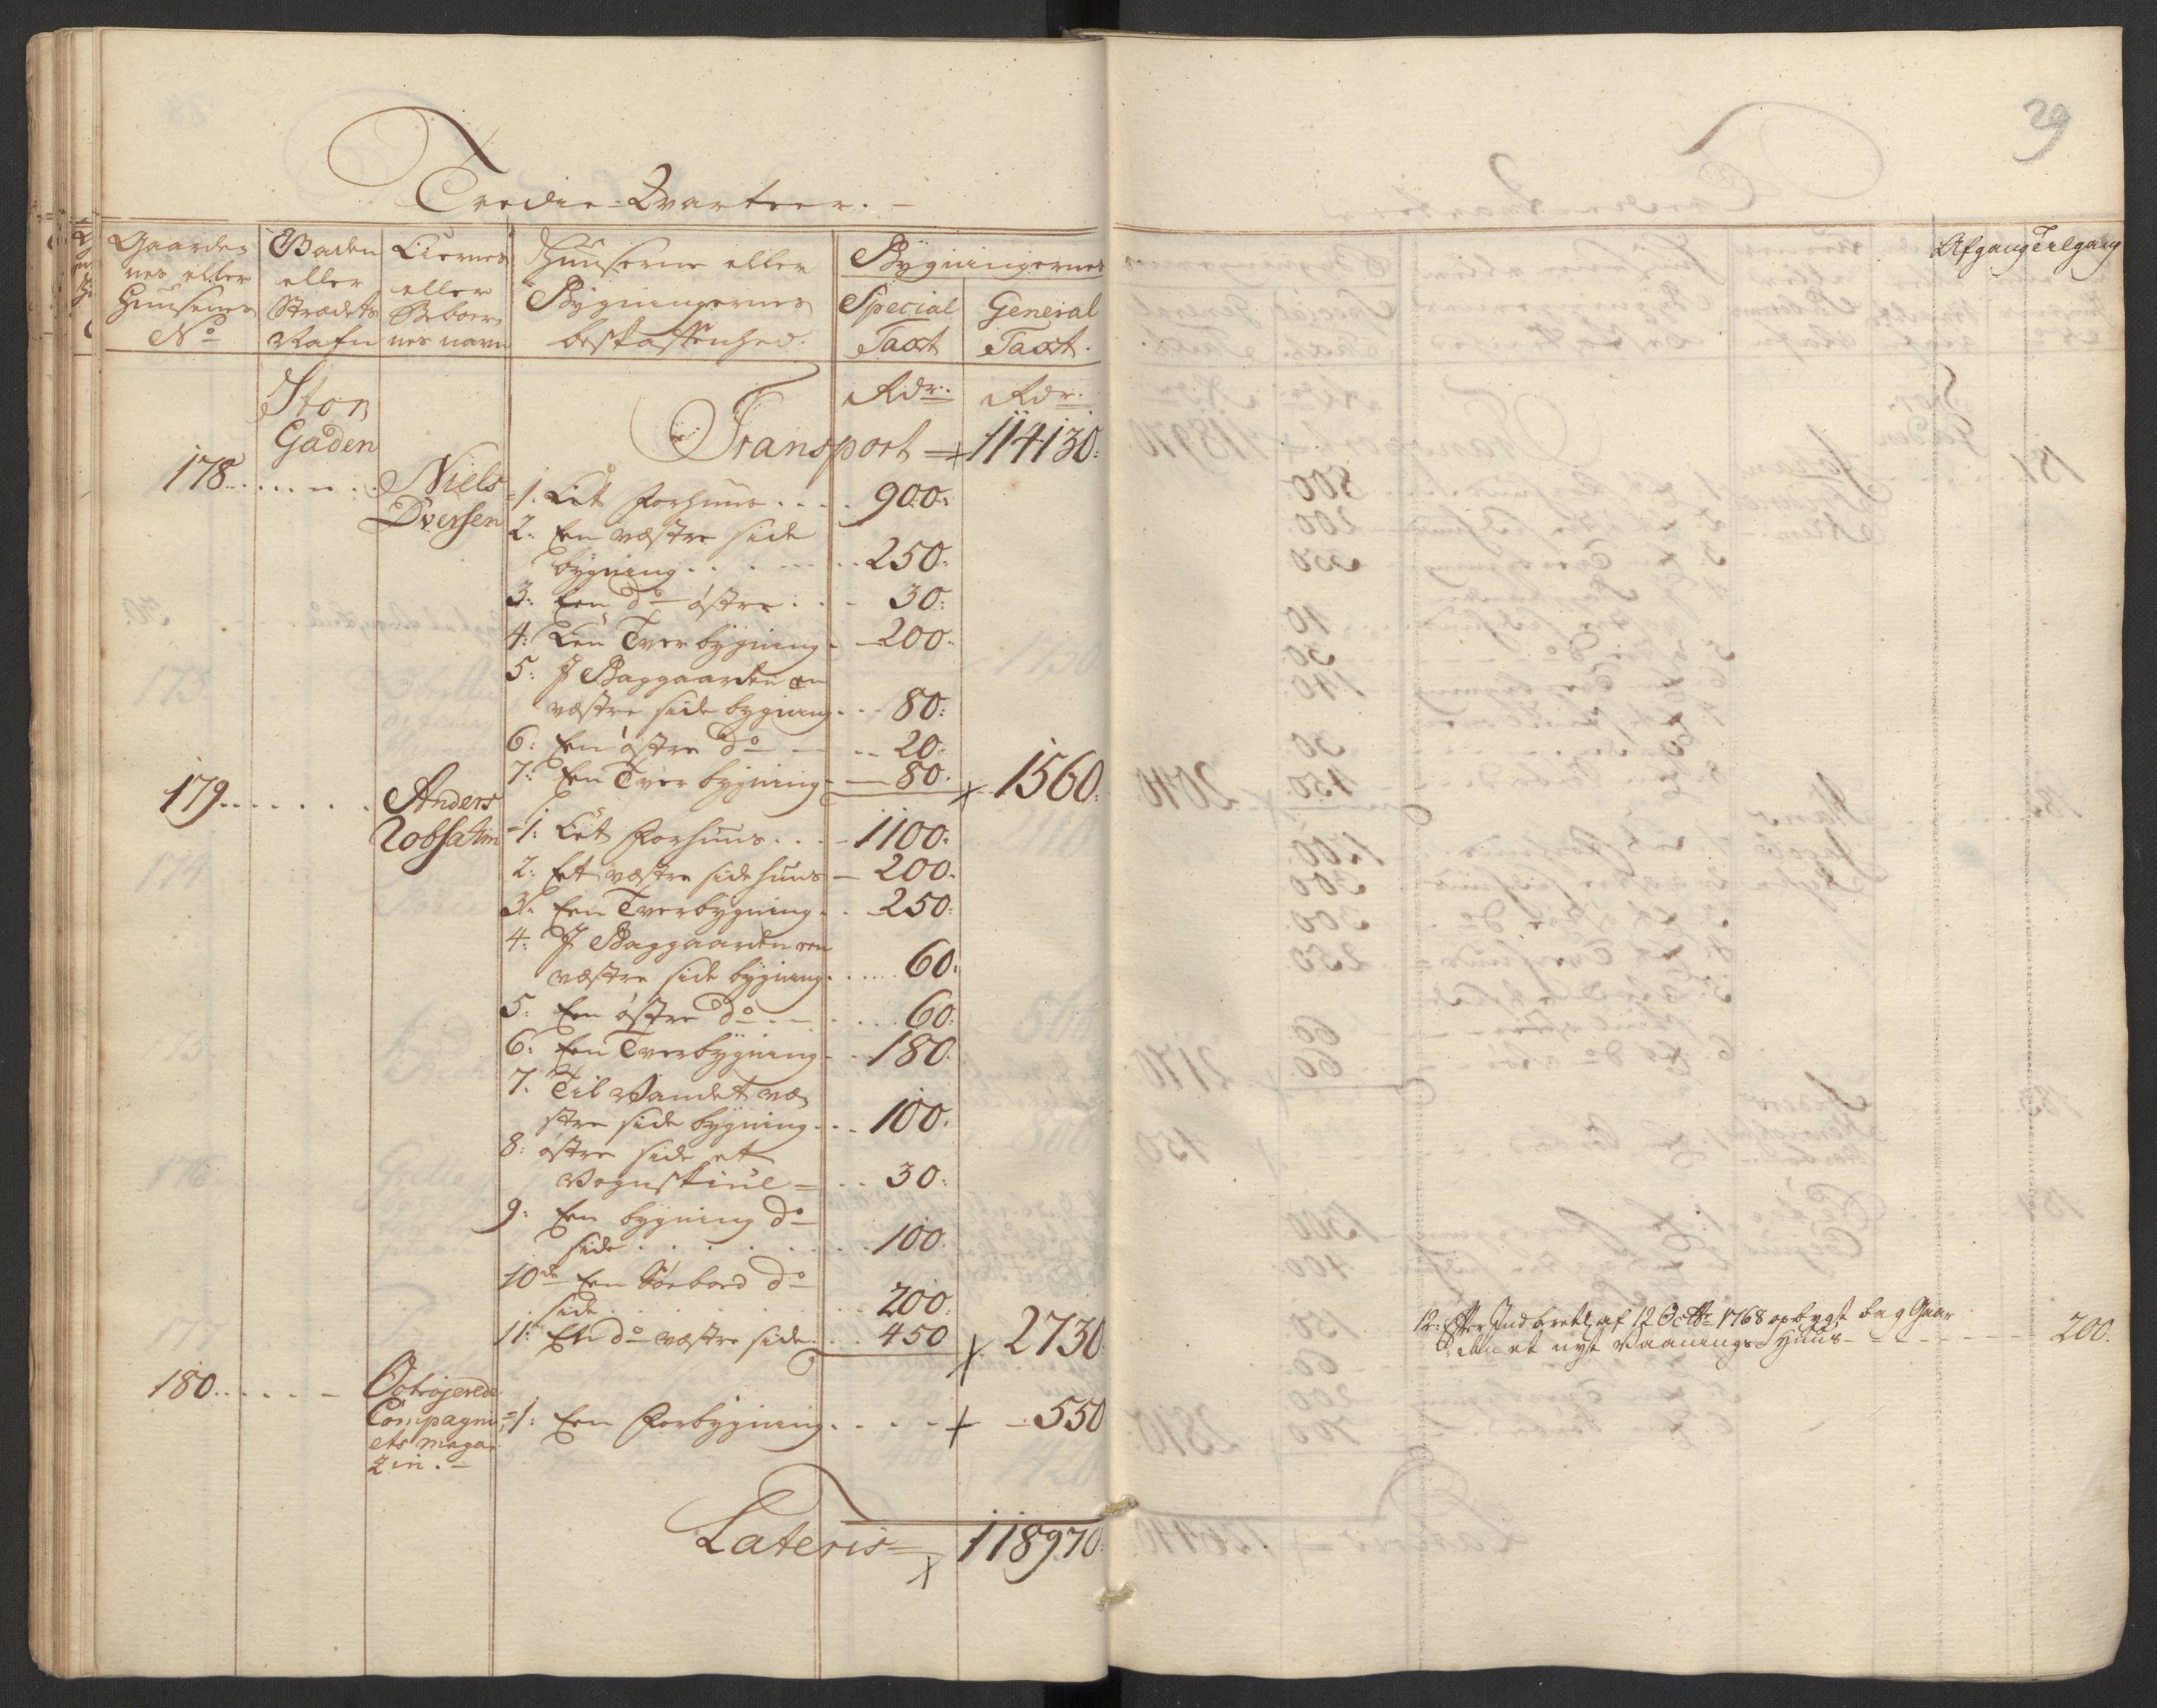 Tredie Qvarteer.
Gaarder
nes eller
Huusenes
No
Gaden
eller
Strædets
Nafn
Eiernes
eller
Beboer
nes navn
Huuserne eller
Bygningernes
beskaffenhed.
Bygningernes
Special
Taxt
General
Taxt.
Rdr.
Rdr.
Stor
Gaden
Transport = 114130:
178. Niels
Dversen
1. Eet Forhuus.... 900:
2. Een vestre side
bygning.... 250.
3. Een do østre.. 30:
4: Een Tverbygning. 200.
5. I Baggaarden en
vestre side bygning. 80:
6: Een østre do 20.
7: Een Tverbygning 80. 1560.
179. Anders
Robsahm
1: Eet Forhuus... 1100:
2: Et vestre sidehuus 200.
3. Een Tverbygning. 250.
4: I Baggaarden een
vestre side bygning.... 60.
5. Een østre do.... 60:
6: Een Tverbygning. 180.
7. Til Vandet ve
stre side bygning... 100.
8: østre side et
Vognskiul = 30:
9: Een bygning do
side...... 100.
10de Een Søebod do
side..... 200.
11: En do vestre side. 450 2730
180. Octrojerede
Compagni
ets maga
zin.
1: Een Forbygning.... 550
Lateris = 118970.
29
Afgang Tilgang
12: Efter Indberetl af 12 Octbr 1768 opbygt bag Gaar
den et nyt Vaanings Huus 200.